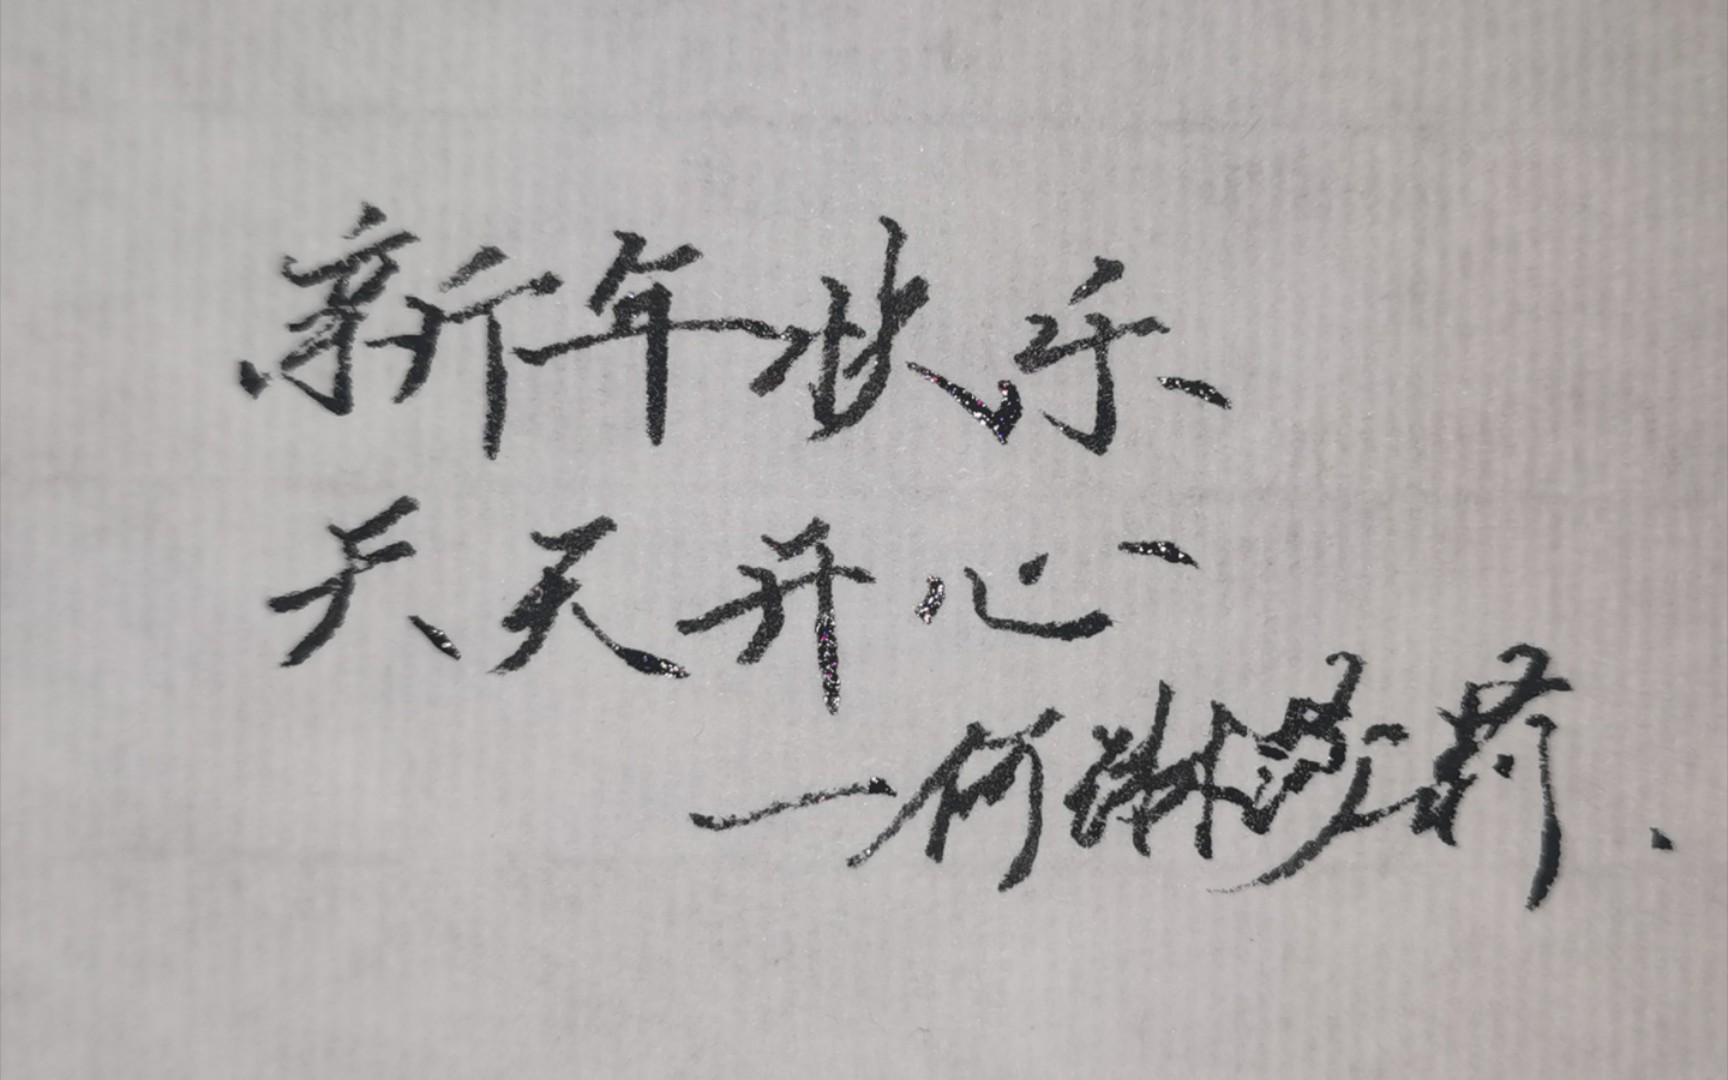 新年快乐
天天开心
一何